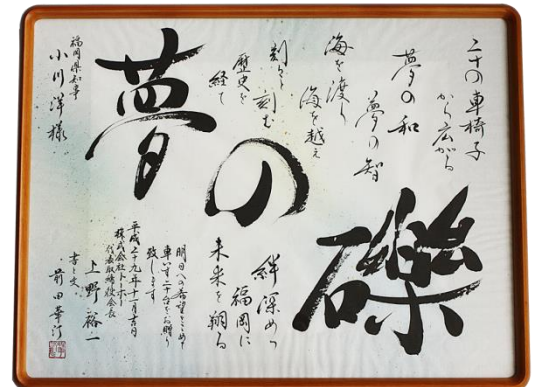 二十の車椅子
から広がる
夢の和
夢の智
海を渡り
海を越え
刻々と刻む
歴史を
経て
夢の礫
絆深めつ
福岡に
未来を翔る
明日への希望をこめて
車いす二十台をお贈り
致します
平成二十九年十一月吉日
株式会社トーホー
代表取締役会長
上野裕一
書と文
前田華汀
福岡県知事
小川洋様